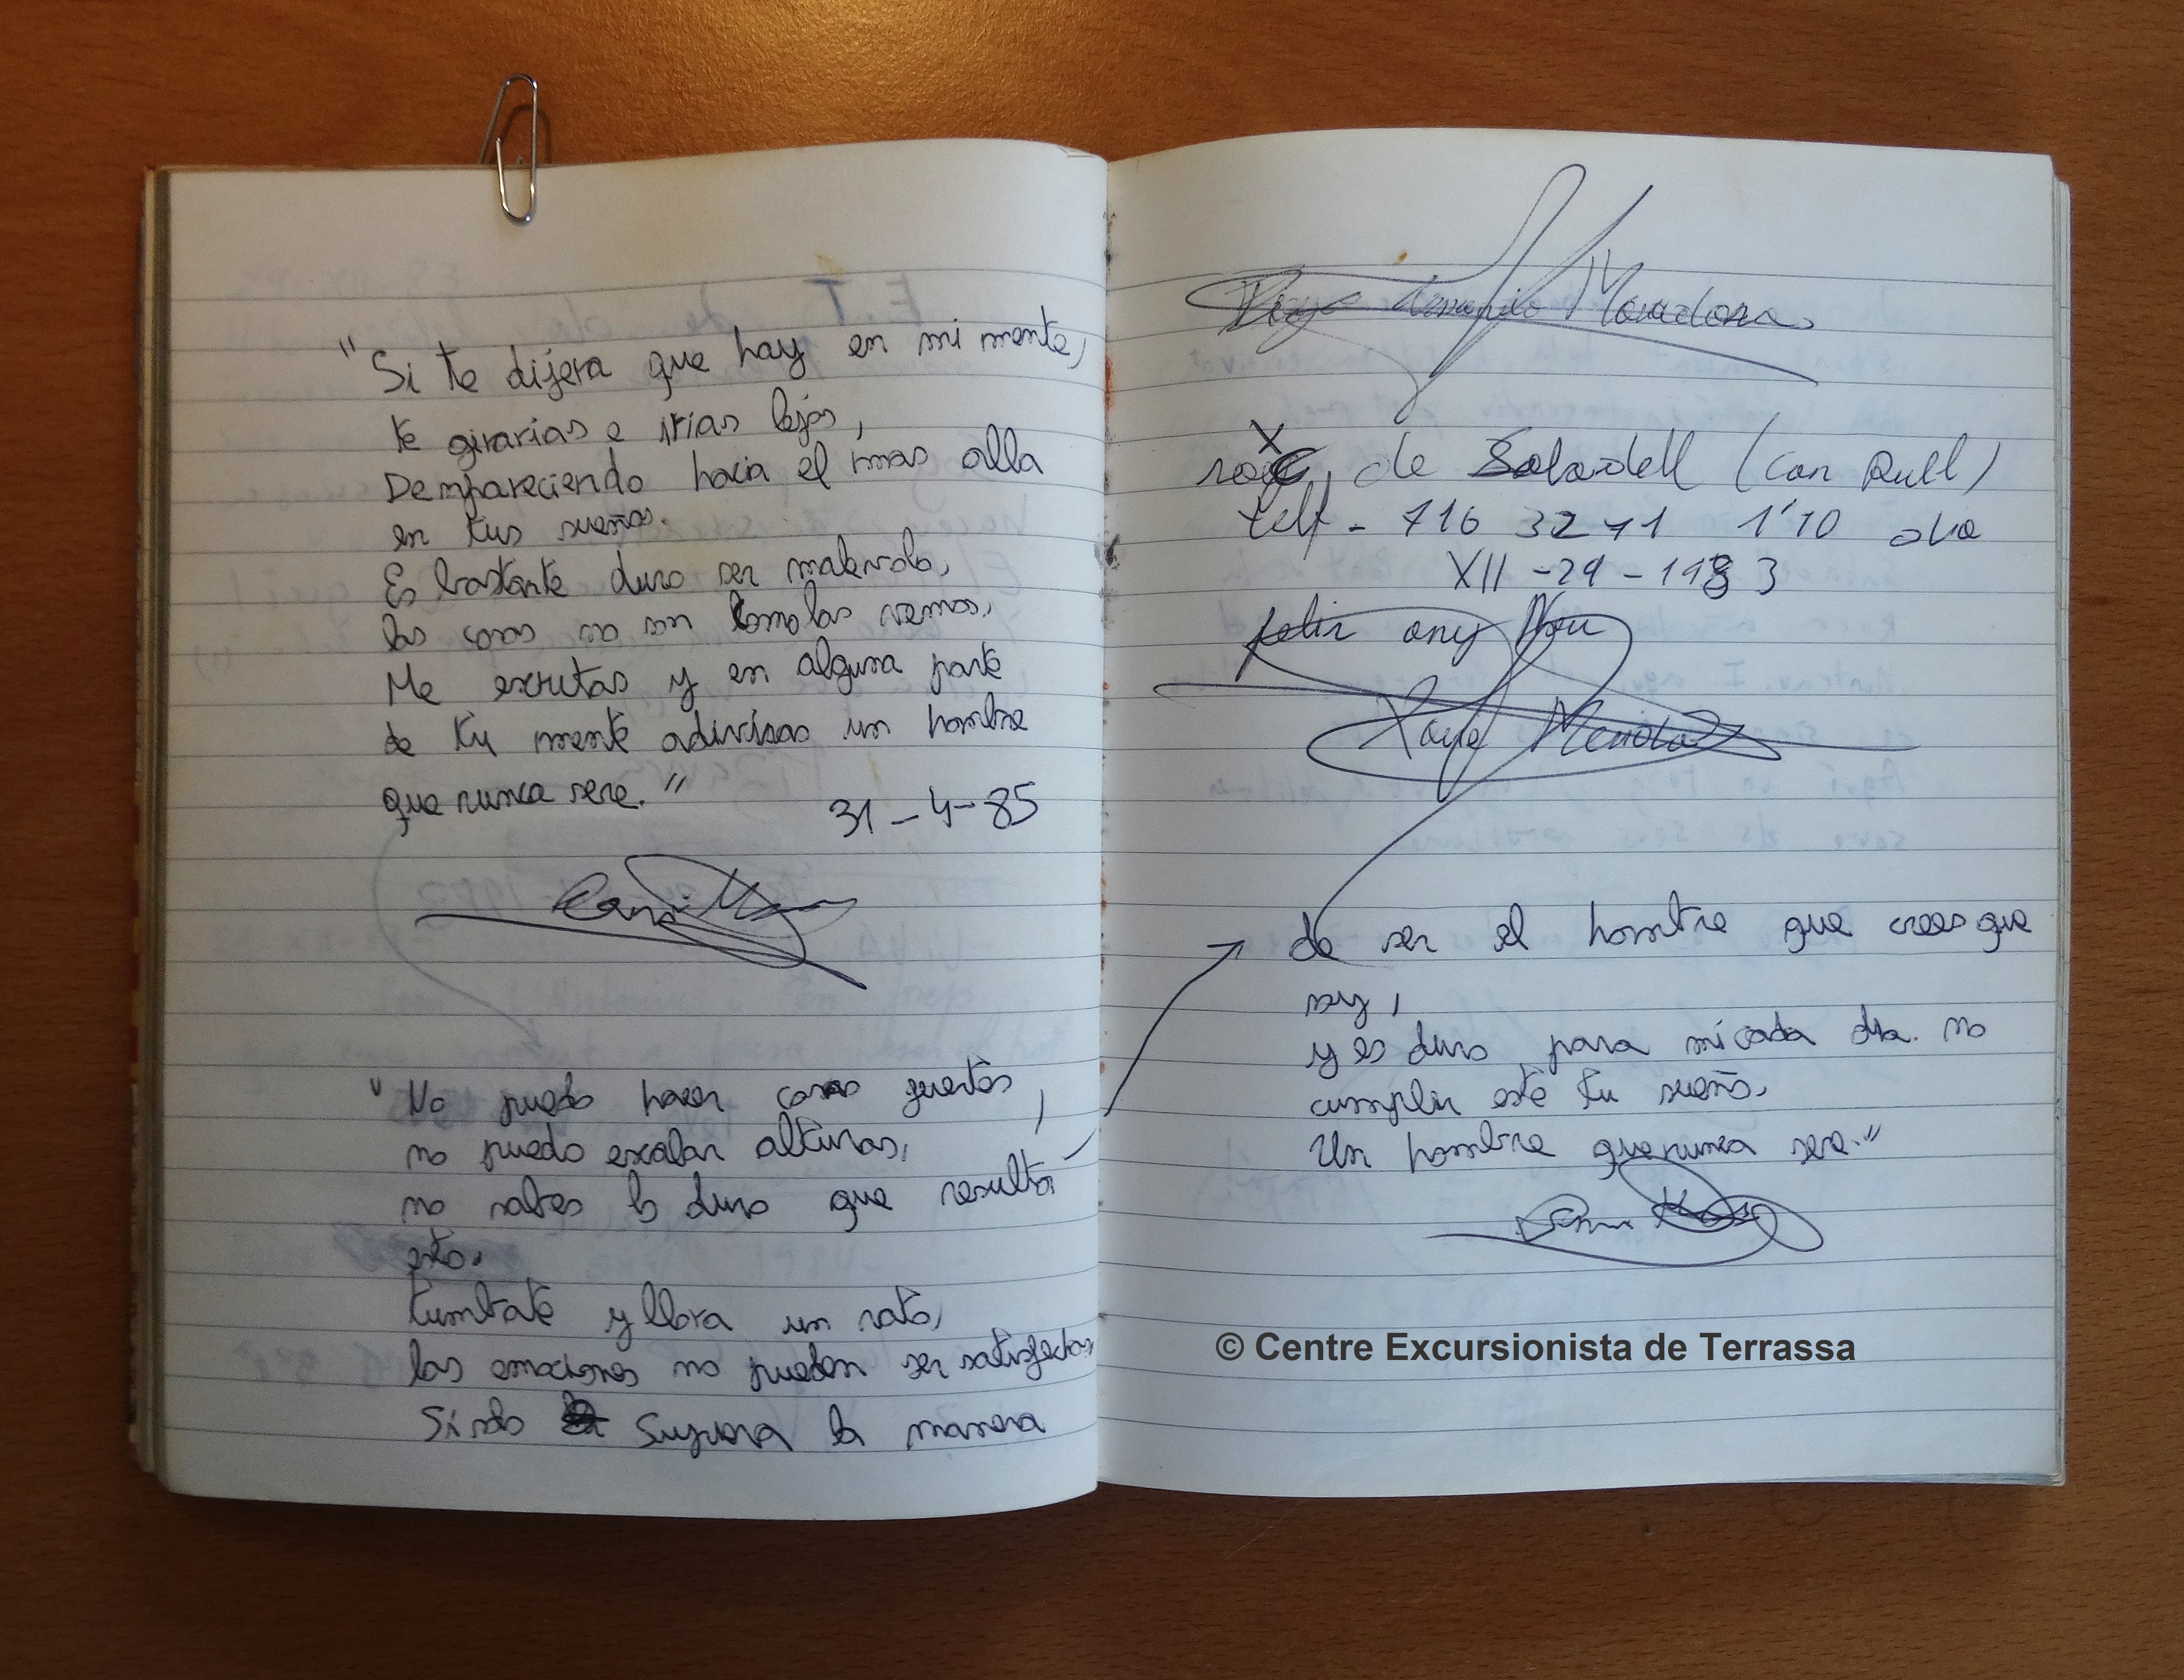 "Si te dijera que hay en mi mente,
te girarias e irias lejos,
Desapareciendo hacia el mas alla
en tus sueños.
Es bastante duro ser malevolo,
las cosas no son como las vemos,
Me escrutas y en alguna parte
de tu mente adivisas un hombre
que nunca sere."
31-4-85
"No puedo hacer cosas ,
no puedo escalar alturas,
no sabes lo duro que resulta
esto.
tumbate y llora un rato,
las emociones no pueden ser satisfechas,
Si solo supiera la manera
Maradona
de Sabadell (Can Rull)
telf - 716 32 71 1'10
XII -29-1983
feliz any Nou
de ser el hombre que crees que
soy,
y es duro para mi cada dia no
cumplir este tu sueño.
Un hombre que nunca sere."
© Centre Excursionista de Terrassa